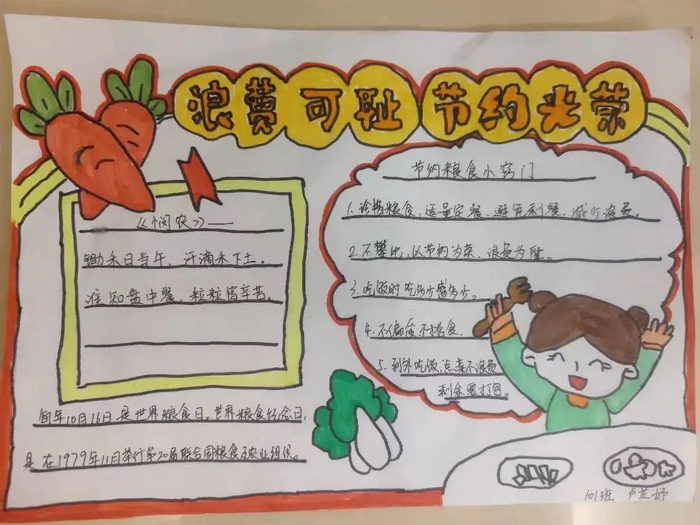 浪费可耻 节约光荣
《悯农》
锄禾日当午，汗滴禾下土。
谁知盘中餐，粒粒皆辛苦。
每年10月16日是世界粮食日。世界粮食纪念日，
是在1979年11月举行第20届联合国粮食及农业组织。
节约粮食小窍门
1.珍惜粮食，适量定餐、避免剩餐、减少浪费。
2.不攀比，以节约为荣、浪费为耻。
3.吃饭时吃多少盛多少。
4.不偏食不挑食
5.到外吃饭点菜不浪费
剩余要打包
101班